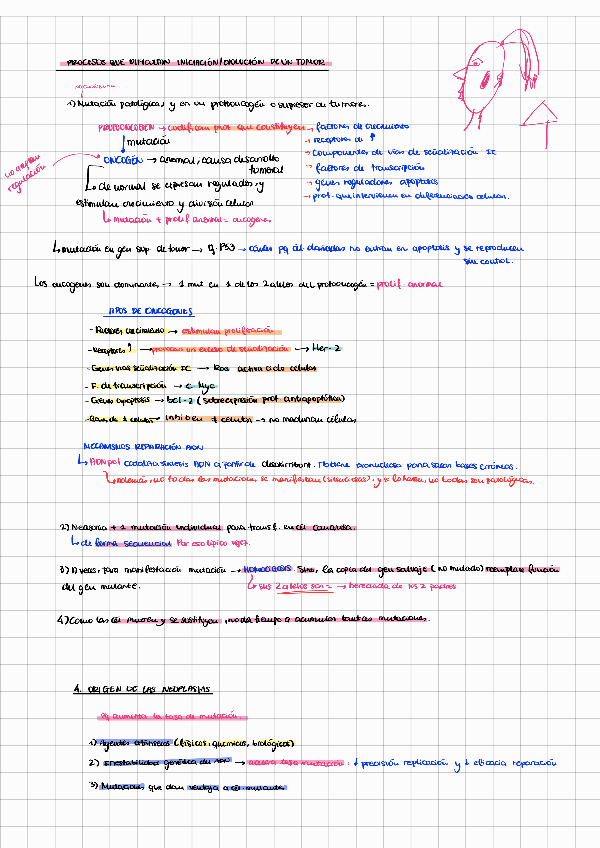 PROCESOS QUE DIFICULTAN INICIACIÓN/EVOLUCIÓN DE UN TUMOR
1) Mutación patológica, y en un protooncogén o supresor de tumores.
PROTOONCOGEN → codifican prot. que constituyen → factores de crecimiento
↓ mutación → receptores de "
no existen regulación → ONCOGÉN → anormal, causa desarrollo tumoral → componentes de vías de señalización IC
→ factores de transcripción
↳ de normal se expresan regulados, y → genes reguladores apoptosis
estimulan crecimiento y división celular → prot. que intervienen en diferenciación celular.
↳ mutación + prolif anormal = oncogenes
↳ mutación en gen sup. de tumor → ej. P53 → cáncer pq cél dañadas no entran en apoptosis y se reproducen
sin control.
Los oncogenes son dominantes, → 1 mut en 1 de los 2 alelos del protooncogén = prolif. anormal
TIPOS DE ONCOGENES
- Factores crecimiento → estimulan proliferación
- Receptores " → provocan un exceso de señalización → Her-2
- Genes vías señalización IC → Ras activa ciclo celular
- F. de transcripción → c-Myc
- Genes apoptosis → bcl-2 (sobreexpresión prot antiapoptótica)
→ inhiben ≠ celular → no maduran células
MECANISMOS REPARACIÓN ADN
↳ ADN pol cataliza síntesis ADN a partir de Tb tiene exonucleasa para sacar bases erróneas.
↳ además, no todas las mutaciones se manifiestan (silenciosas), y si lo hacen, no todas son patológicas.
2) Necesaria + 1 mutación individual para transf. en cél cancerosa.
↳ de forma secuencial. Por eso típico vejez.
3) A veces, para manifestación mutación → HOMOCIGOSIS. Sino, la copia del gen salvaje (no mutado) reemplaza función
del gen mutante. ↳ sus 2 alelos son = → heredada de los 2 padres
4) Como las cél mueren y se sustituyen, no da tiempo a acumular tantas mutaciones.
4. ORIGEN DE LAS NEOPLASIAS
aumenta la tasa de mutación.
1) Agentes (físicos, químicos, biológicos)
2) Inestabilidad genética del ADN → acelera tasa mutación: ↓ precisión replicación y ↓ eficacia reparación
3) Mutaciones que dan ventaja a cél mutante